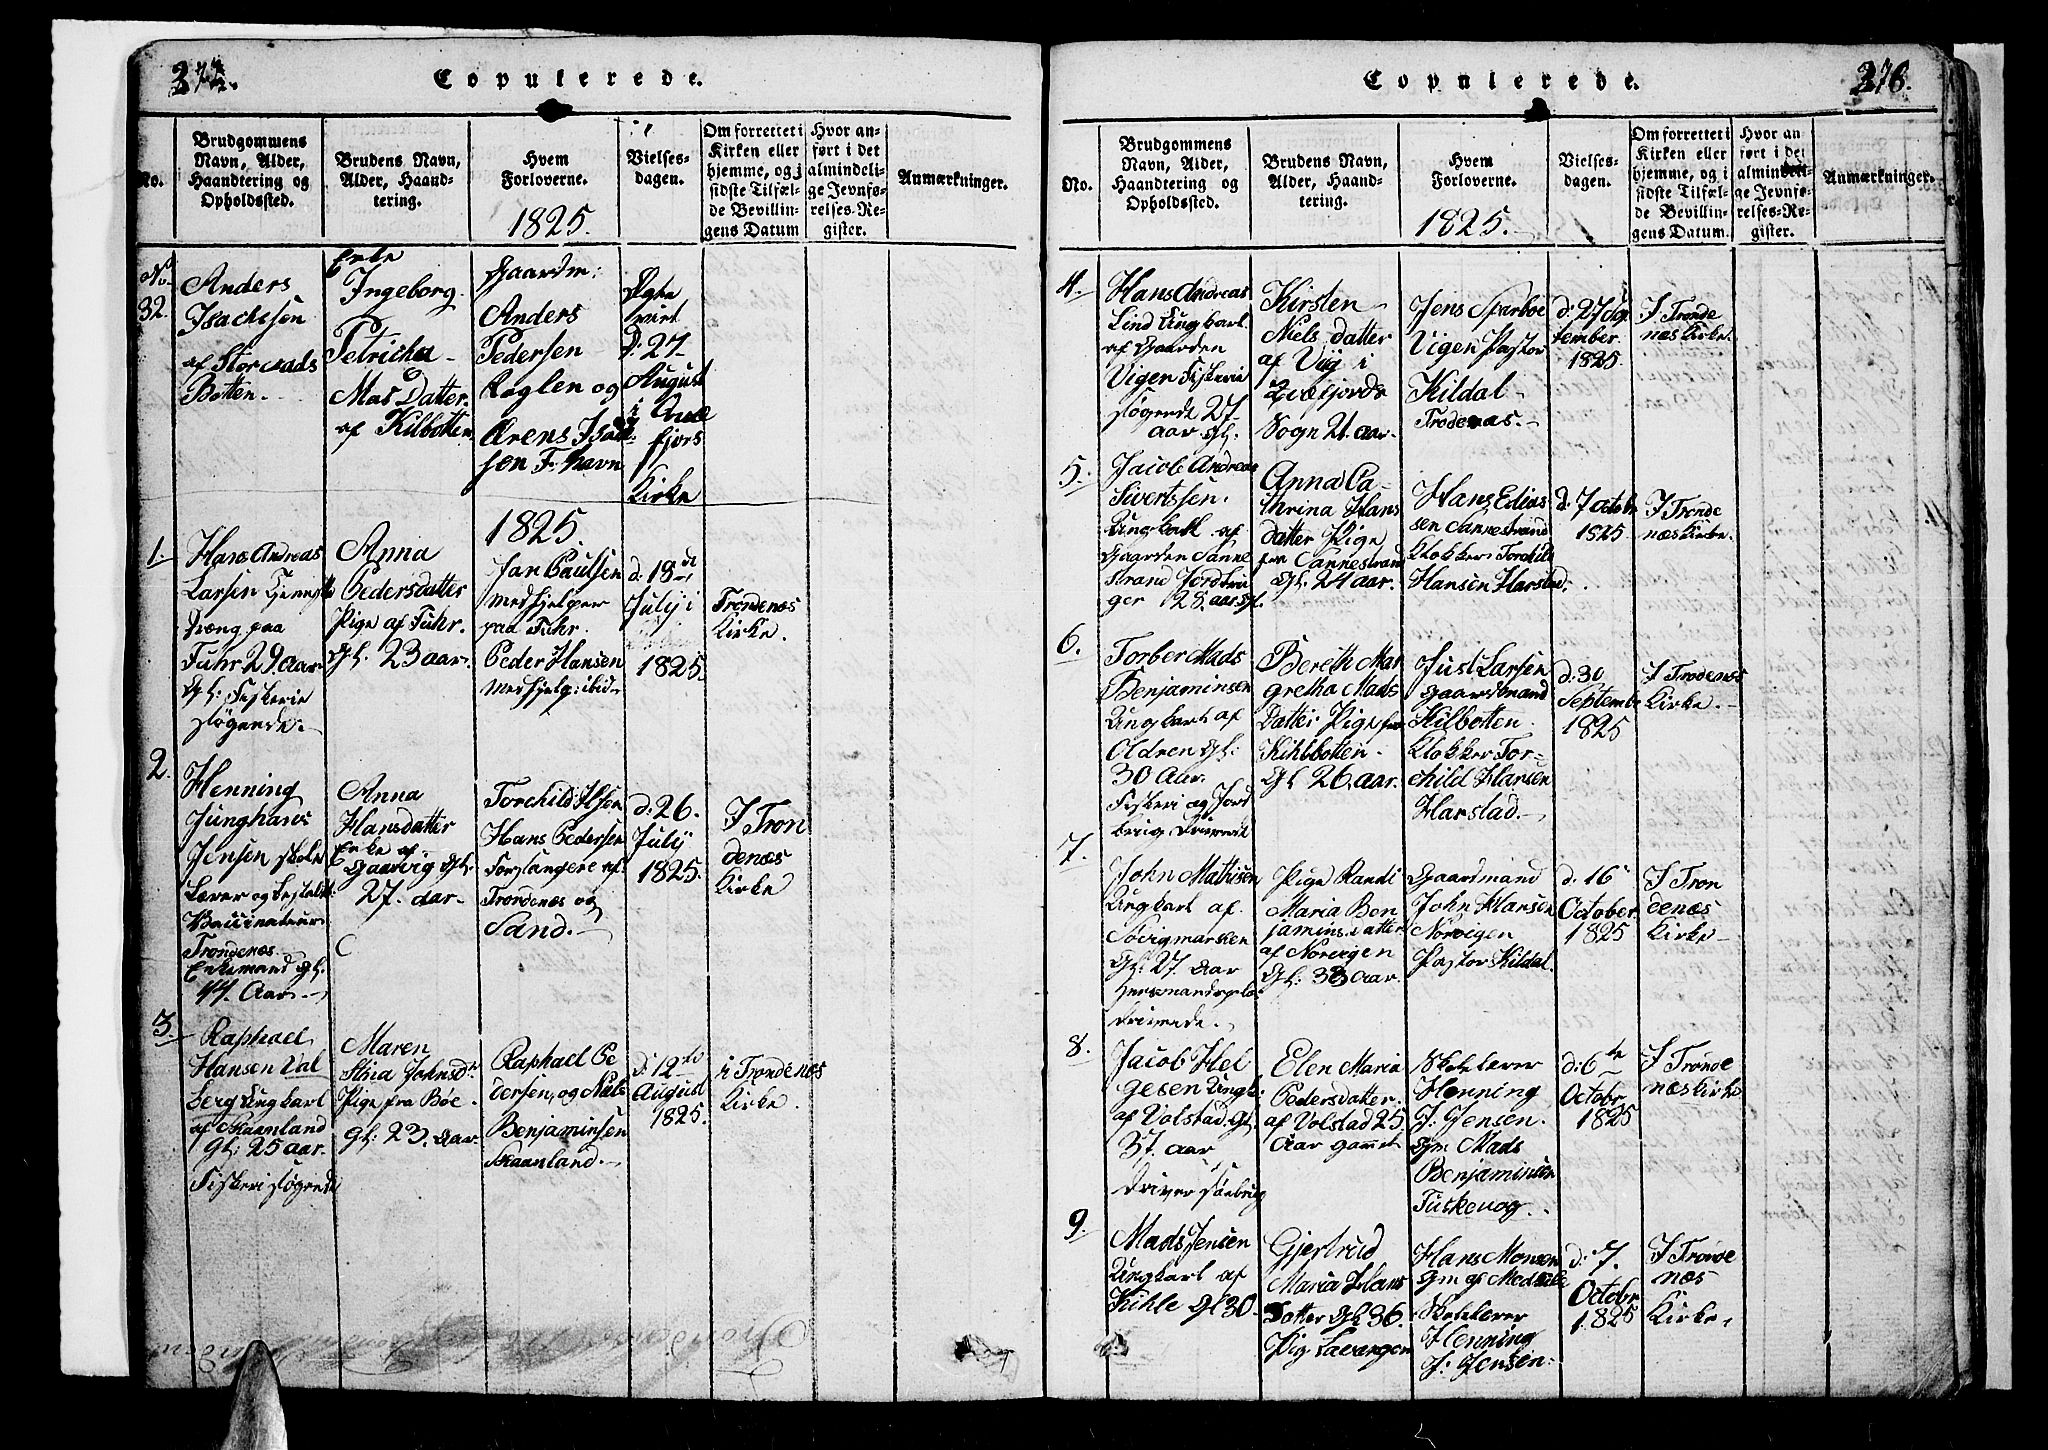 Copulerede.
No.
Brudgommens
Navn, Alder,
Haandtering og
Opholdssted.
Brudens Navn,
Alder, Haand-
tering.
Hvem
Forloverne.
1825.
Vielses-
dagen.
Om forrettet i
Kirken eller
hjemme, og i
sidste Tilfæl-
de Bevillin-
gens Datum
Hvor an-
ført i det
almindeli-
ge Jevnfø-
relses-Re-
gister.
Anmærkninger.
No.
32.
Anders
Isachsen
af Storvads
Botten.
Enke
Ingeborg
Petricha
Mas Datter.
af Kilbotten
Gaardm:
Anders
Pedersen
og
Arens
sen F. havn
Ægte
viert
D: 27
August
i
fjors
Kirke
1825.
1.
Hans Andreas
Larsen Tjeneste
Dræng paa
Fuhr 29. Aar
Gl: Fiskerie
søgende.
Anna
Pedersdatter
Pige af Fuhr.
Gl. 23 aar.
Jan Paulsen
Medhjelper
paa Fuhr.
Peder Hansen
Medhjelp: ibid
d. 18de
July i
1825.
Trondenæs
Kirke.
2.
Henning
Junghans
Jensen skole
Lærer og
Vaccinateur
Trondenæs
Enkemand gl.
44. Aar.
Anna
Hansdatter
Enke af
Gaarvig Gl.
27. aar
Torchild Hsen
Hans Pedersen
Forsangere af
Trondenæs og
Sand.
d: 26.
July
1825.
I Tron
denæs
Kirke
3.
Raphael
Hansen Val
berg Ungkarl
af Skaanland
gl: 25 aar.
Fiskeri søgende
Maren
Stina Johnsd.
Pige fra Böe
gl: 23. aar
Raphael Pe
dersen, og Niels
Benjaminsen
Skaanland.
d: 12te
August
1825.
i Trondenæs
Kirke.
Copulerede.
276.
No.
Brudgommens
Navn, Alder,
Haandtering og
Opholdssted.
Brudens Navn,
Alder, Haand-
tering.
Hvem
Forloverne.
1825.
Vielses-
dagen.
Om forrettet i
Kirken eller
hjemme, og i
sidste Tilfæl-
de Bevillin-
gens Datum.
Hvor an
ført i det
almindeli-
ge Jevnfø-
relses-Re-
gister.
Anmærkninger.
4.
Hans Andreas
Lind Ungkarl.
af Gaarden
Vigen Fiskerie
søgende 27
aar gl.
Kirsten
Niels datter
af Viig i
Qvæfjords
Sogn 21. aar.
Jens Sparboe
Vigen Pastor
Kildal
Trodenæs.
d: 27 Sep
tember.
1825
I Tronde
næs Kirke.
5.
Jacob Andreas
Sivertssen.
Ungkarl af
Gaarden Sanne
strand Jordbru
ger 28. aar gl.
Anna Ca-
thrina Hans
datter Pige
fra Sannestrand
Gl: 24 aar.
Hans Edias
sen Sannestrand
Klokker Torchild
Hansen Harstad.
d: 7 octobr
1825
I Tronde
næs Kirke.
6.
Torber Mads
Benjaminsen
Ungkarl af
Oldren gl:
30 Aar.
Fiskeri og Jord
brug
Bereth Mar
gretha Mads
Datter Pige fra
Kihlbotten.
Gl. 26. aar.
Just Larsen
Gaardmand
Kilbotten.
Klokker Tor-
child Hansen
Harstad.
d: 30
Septembe
1825
I Trodenæs
Kirke.
7.
John Mathisen
Ungkarl af
Sövigmarken
Gl: 27. Aar
Drivende.
Pige Randi
Maria Ben
jamins datter
af Norvegen
Gl: 33 aar.
Gaardmand
John Hansen
Norvegen
Pastor Kildal.
d. 16
October.
1825
I Tron
denæs
Kirke
8.
Jacob Hel
gesen Ungk:
af Volstad. gl.
37. aar
Driver söebrug
Elen Maria
Pedersdatter.
af Volstad 25
Aar gammel
Skolelærer
Henning
J: Jensen.
Gm Mads
Benjaminsen
Tuskevog.
d: 6te
Octobr
1825
I Tronde
næs Kirke
9.
Mads Jensen
Ungkarl af
Kihle gl 30
Gjertrud
Maria Hans
datter Gl 36.
Pig Lavangen
Hans Monsen
Gm af
Skolelærer
Henning
J: Jensen.
d: 7.
Octobr
1825
I Tronde
næs
Kirke,